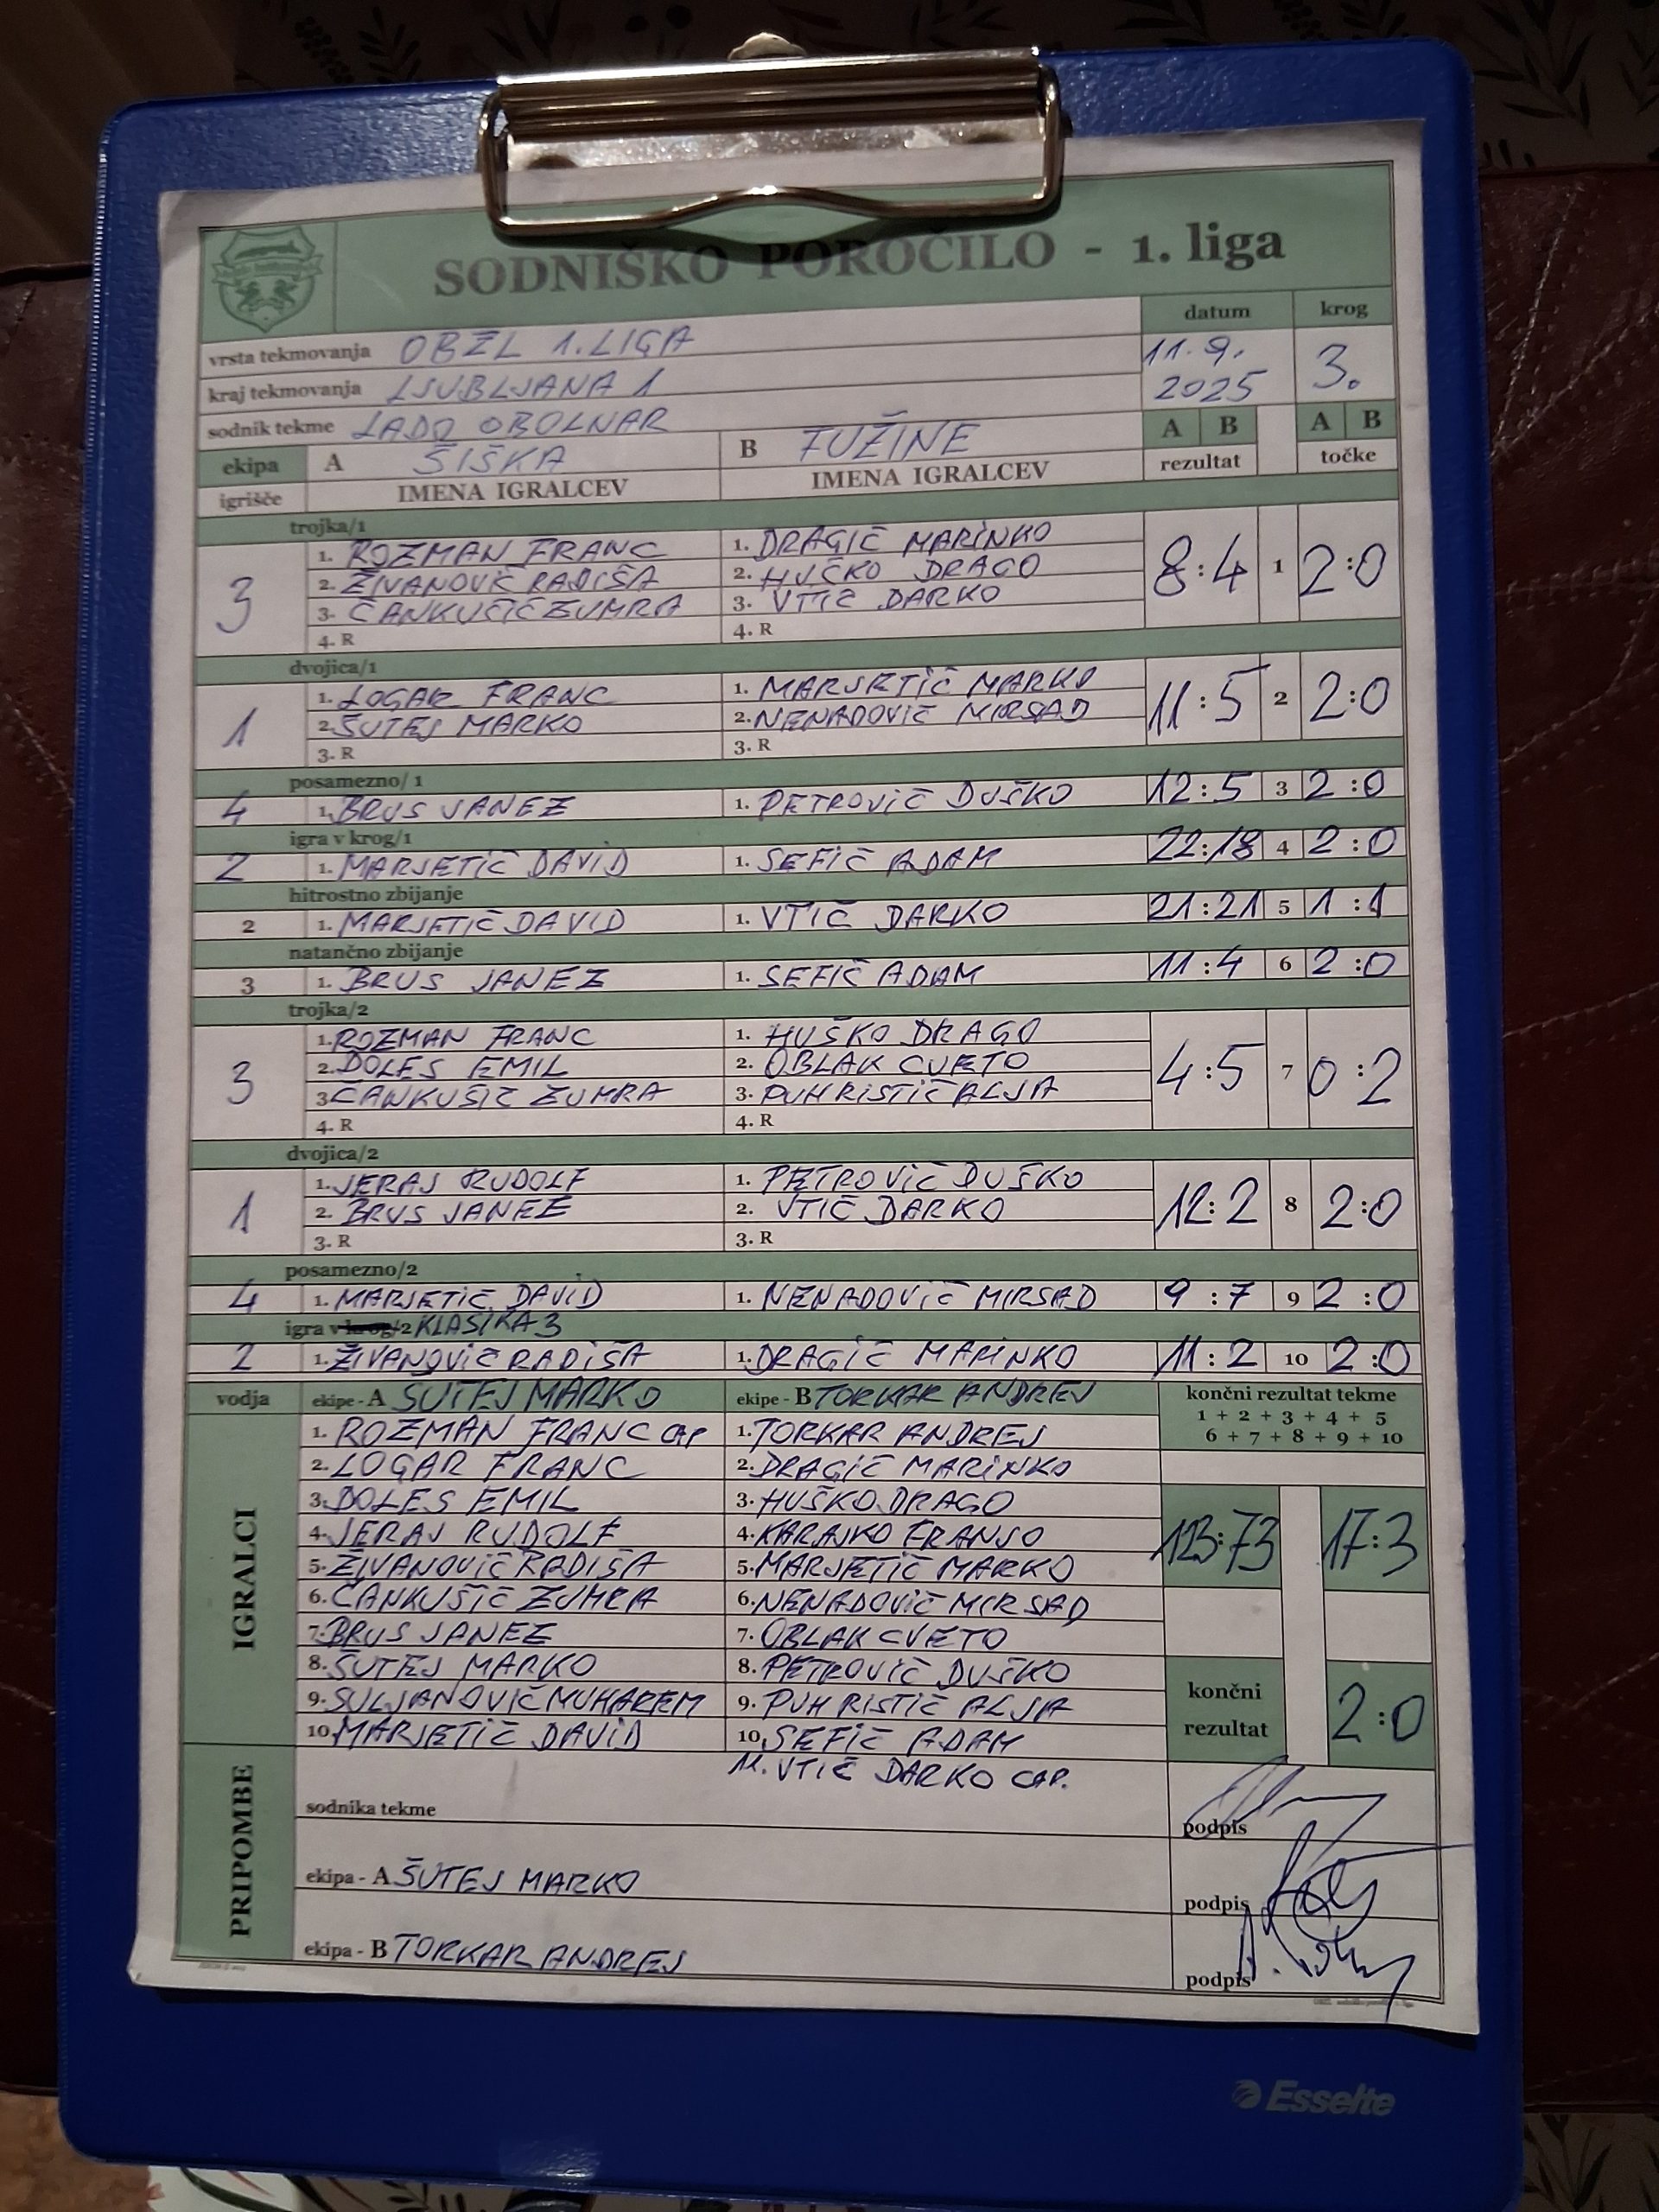 SODNIŠKO POROČILO - 1. liga
datum krog
vrsta tekmovanja OBZL 1. LIGA 11.9. 2025 3.
kraj tekmovanja LJUBLJANA 1
sodnik tekme LADO OBOLNAR A B A B
ekipa A ŠIŠKA B FUŽINE rezultat točke
igrišče IMENA IGRALCEV IMENA IGRALCEV
trojka/1
3 8:4 1 2:0
1. ROZMAN FRANC 1. DRAGIČ MARINKO
2. ŽIVANOVIČ RADIŠA 2. HUČKO DRAGO
3. ČANKUČIČ ZUMRA 3. VTIČ DARKO
4. R 4. R
dvojica/1
1 11:5 2 2:0
1. LOGAR FRANC 1. MARJETIČ MARKO
2. ŠUTEJ MARKO 2. NENADOVIČ MIRSAD
3. R 3. R
posamezno/ 1
4 1. BRUS JANEZ 1. PETROVIČ DUŠKO 12:5 3 2:0
igra v krog/1
2 1. MARJETIČ DAVID 1. SEFIČ ADAM 22:18 4 2:0
hitrostno zbijanje
2 1. MARJETIČ DAVID 1. VTIČ DARKO 21:21 5 1:1
natančno zbijanje
3 1. BRUS JANEZ 1. SEFIČ ADAM 11:4 6 2:0
trojka/2
3 4:5 7 0:2
1. ROZMAN FRANC 1. HUŠKO DRAGO
2. DOLES EMIL 2. OBLAK CVETO
3. ČANKUŠIČ ZUMRA 3. PUH RISTIČ ALJA
4. R 4. R
dvojica/2
1 12:2 8 2:0
1. JERAJ RUDOLF 1. PETROVIČ DUŠKO
2. BRUS JANEZ 2. VTIČ DARKO
3. R 3. R
posamezno/2
4 1. MARJETIČ DAVID 1. NENADOVIČ MIRSAD 9:7 9 2:0
igra v krog/2 KLASIKA 3
2 1. ŽIVANOVIČ RADIŠA 1. DRAGIČ MARINKO 11:2 10 2:0
vodja ekipe - A ŠUTEJ MARKO ekipe - B TORKAR ANDREJ končni rezultat tekme
1 + 2 + 3 + 4 + 5
6 + 7 + 8 + 9 + 10
IGRALCI
1. ROZMAN FRANC CAP 1. TORKAR ANDREJ
2. LOGAR FRANC 2. DRAGIČ MARINKO
3. DOLES EMIL 3. HUŠKO DRAGO
4. JERAJ RUDOLF 4. KARAJKO FRANJO 17:3
5. ŽIVANOVIČ RADIŠA 5. MARJETIČ MARKO
6. ČANKUŠIČ ZUMRA 6. NENADOVIČ MIRSAD
7. BRUS JANEZ 7. OBLAK CVETO
8. ŠUTEJ MARKO 8. PETROVIČ DUŠKO
9. SULJANOVIČ MUHAREM 9. PUH RISTIČ ALJA končni rezultat 2:0
10. MARJETIČ DAVID 10. SEFIČ ADAM
11. VTIČ DARKO CAP.
PRIPOMBE
sodnika tekme podpis
ekipa - A ŠUTEJ MARKO podpis
ekipa - B TORKAR ANDREJ podpis
Esselte